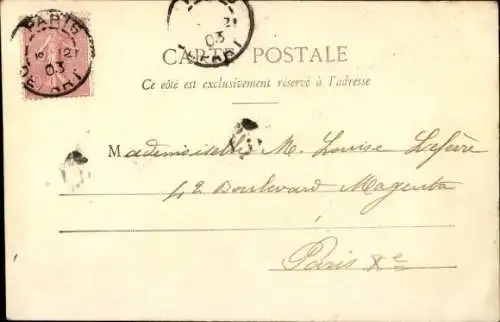 PARIS
21
03
CARTE POSTALE
Ce côté est exclusivement réservé à l'adresse
Mademoiselle M. Louise Lefèvre
42 Boulevard Magenta
Paris Xe